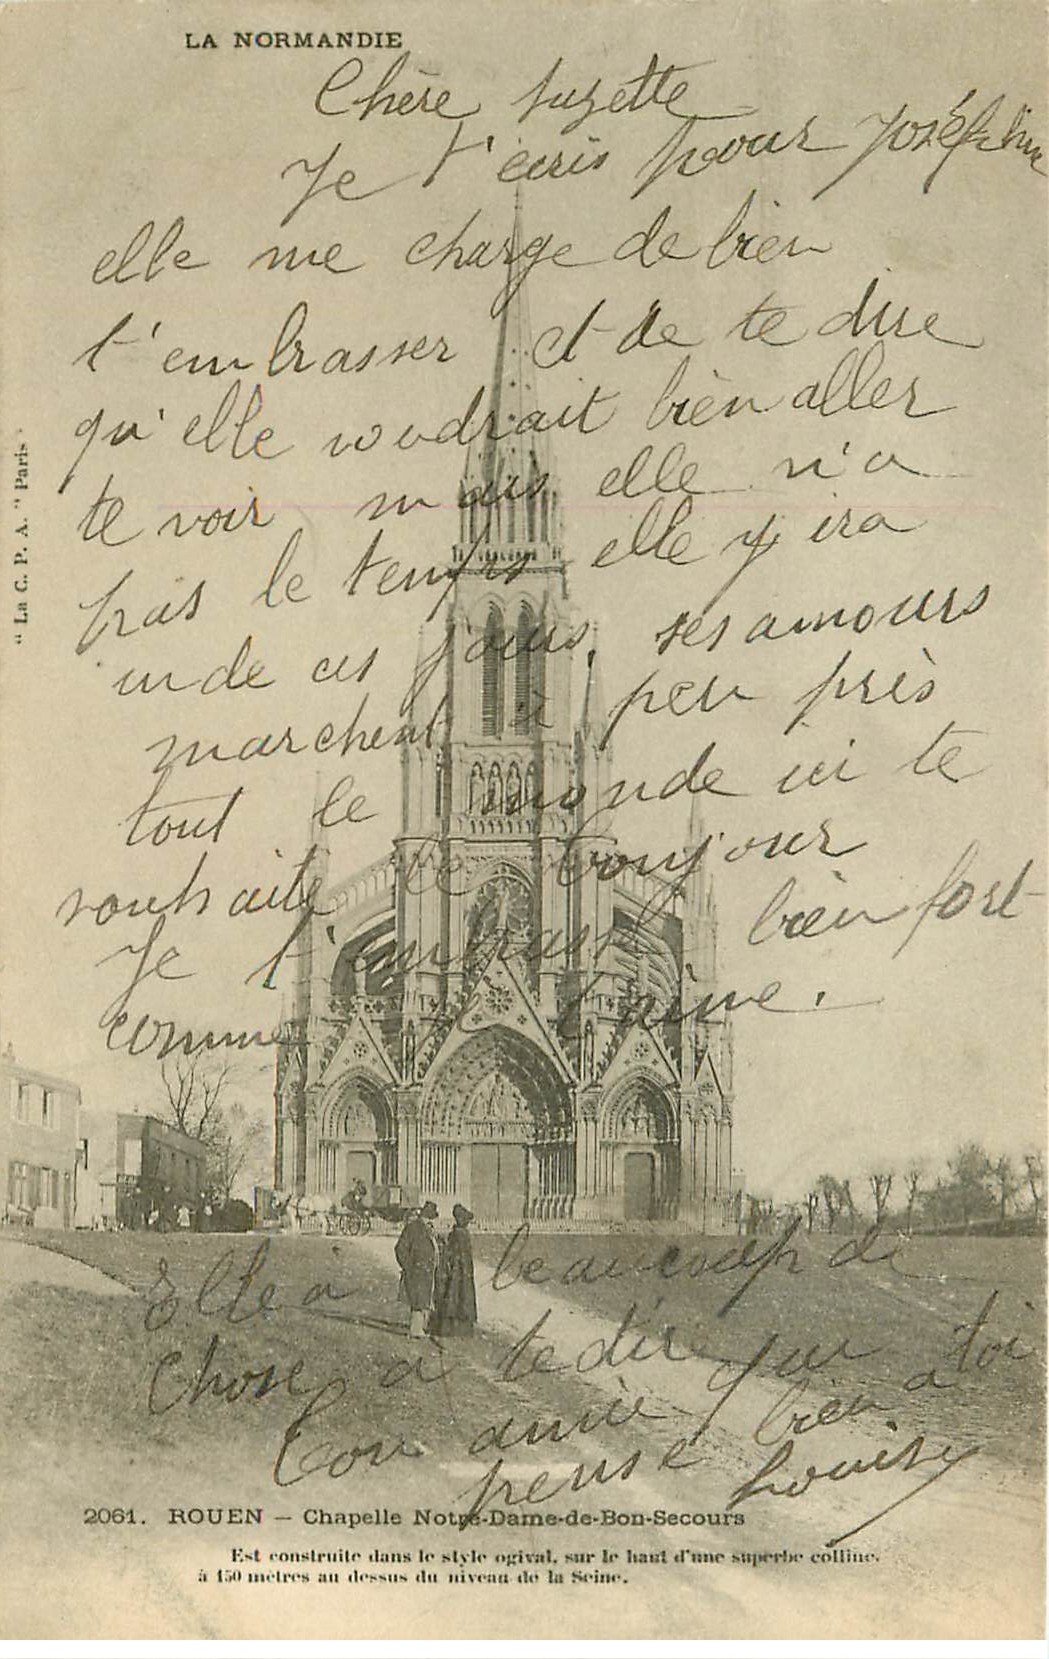 LA NORMANDIE
Chère Suzette
Je t'ecris pour Joséphine
elle me charge de bien
t'embrasser et de te dire
qu'elle voudrait bien aller
te voir mais elle n'a
pas le temps elle y ira
un de ces jours. ses amours
marchent à peu près
tout le monde ici te
souhaite le bonjour
Je t'embrasse bien fort
comme je t'aime.
Elle à beaucoup de
chose à te dire
ton amie qui bien à toi
pense Louise
"La C. P. A." Paris
2061. ROUEN — Chapelle Notre-Dame-de-Bon-Secours
Est construite dans le style ogival, sur le haut d'une superbe colline,
à 150 mètres au dessus du niveau de la Seine.